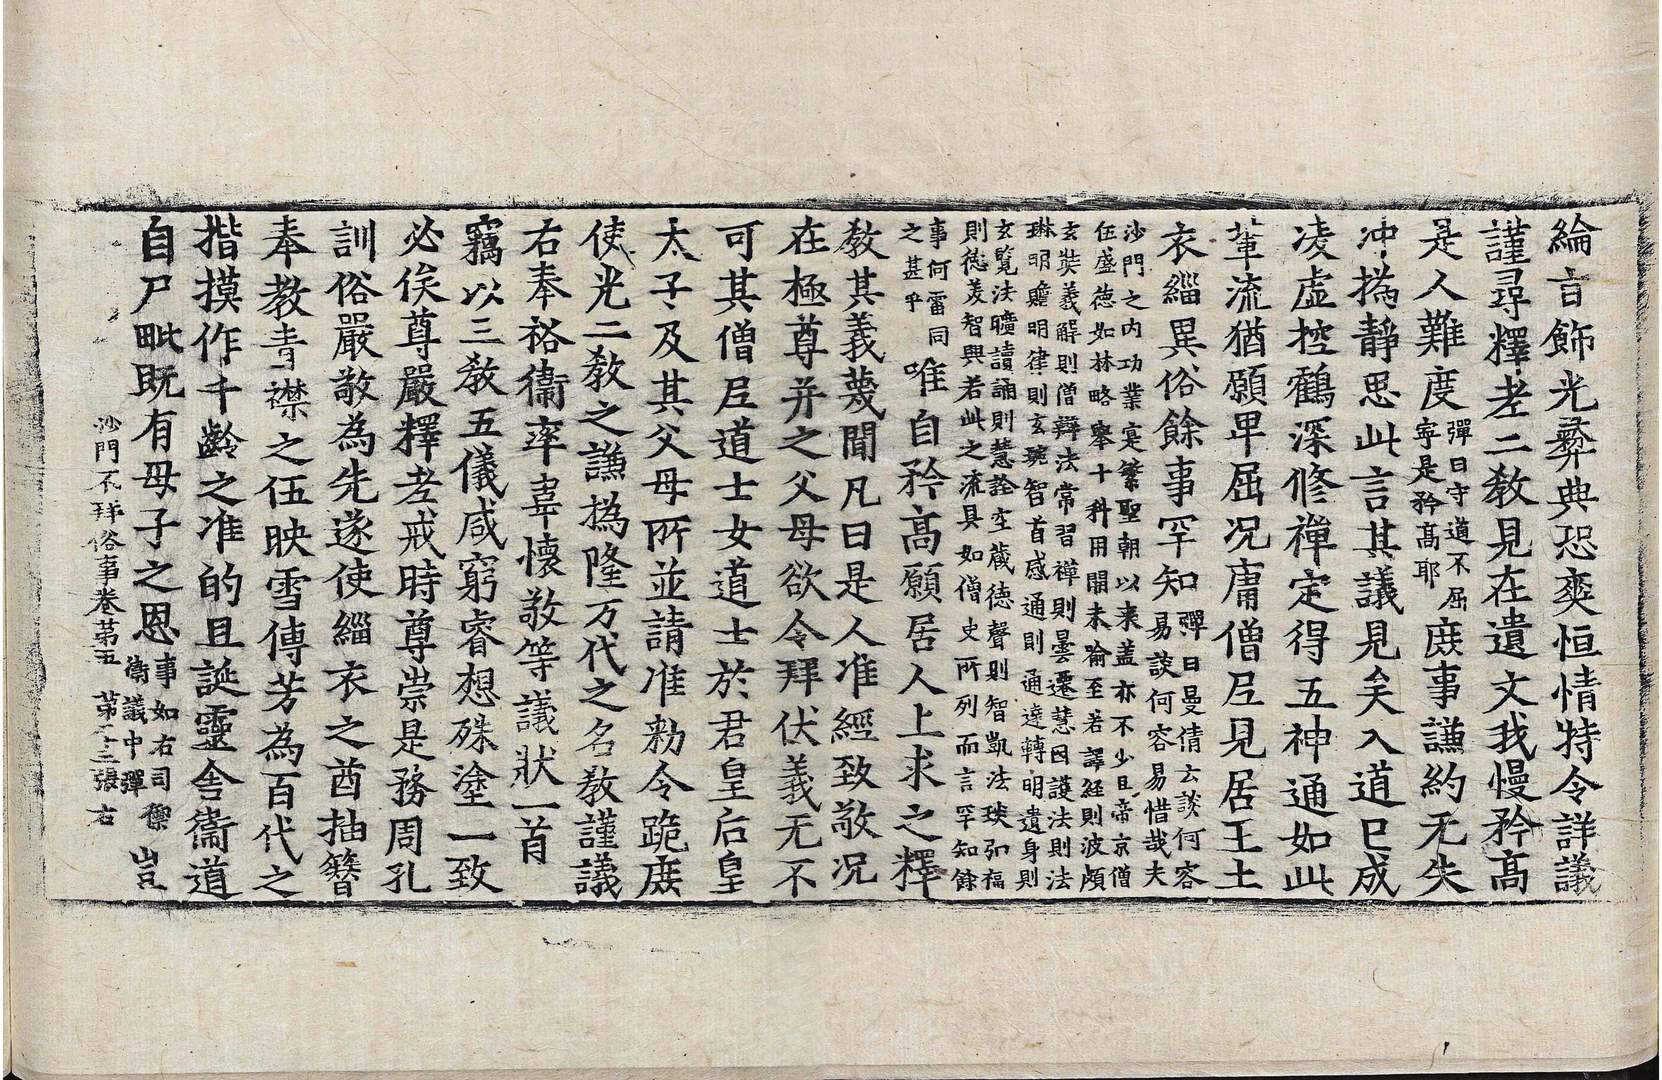 綸言飾光彜典恐奕恒情特令詳議
謹尋釋老二教見在遺文我慢矜髙
是人難度
彈曰守道不屈
寧是矜髙耶
庶事謙約无失
冲撝靜思此言其議見矣入道已成
凌虛控鶴深修禪定得五神通如此
輩流猶願卑屈况庸僧尼見居王土
衣緇異俗餘事罕知
彈曰曼倩云談何容
易談何容易惜哉夫
沙門之内功業寔繁聖朝以来盖亦不少且帝京僧
伍盛德如林略舉十科用開未喻至若譯経則波頗
玄奘義解則僧辯法常習禅則曇遷慧因護法則法
琳明贍明律則玄琬智首感通則通逹轉明遺身則
玄覧法曠讀誦則慧詮空蔵德聲則智凱法琰弘福
則德羙智興若此之流具如僧史所列而言罕知餘
事何雷同
之甚乎
唯自矜髙願居人上求之釋
教其義蔑聞凡曰是人准經致敬况
在極尊并之父母欲令拜伏義无不
可其僧尼道士女道士於君皇后皇
太子及其父母所並請准勑令跪庶
使光二教之謙撝隆万代之名教謹議
右奉裕衞率韋懷敬等議狀一首
竊以三教五儀咸窮睿想殊塗一致
必俟尊嚴釋老戒時尊崇是務周孔
訓俗嚴敬為先遂使緇衣之酋抽簪
奉教青襟之伍映雪傳芳為百代之
揩摸作千齡之准的且誕靈舎衞道
自尸毗既有母子之恩
事如右司禦
衛議中彈
豈
沙門不拜俗事卷苐五 苐十三張 右